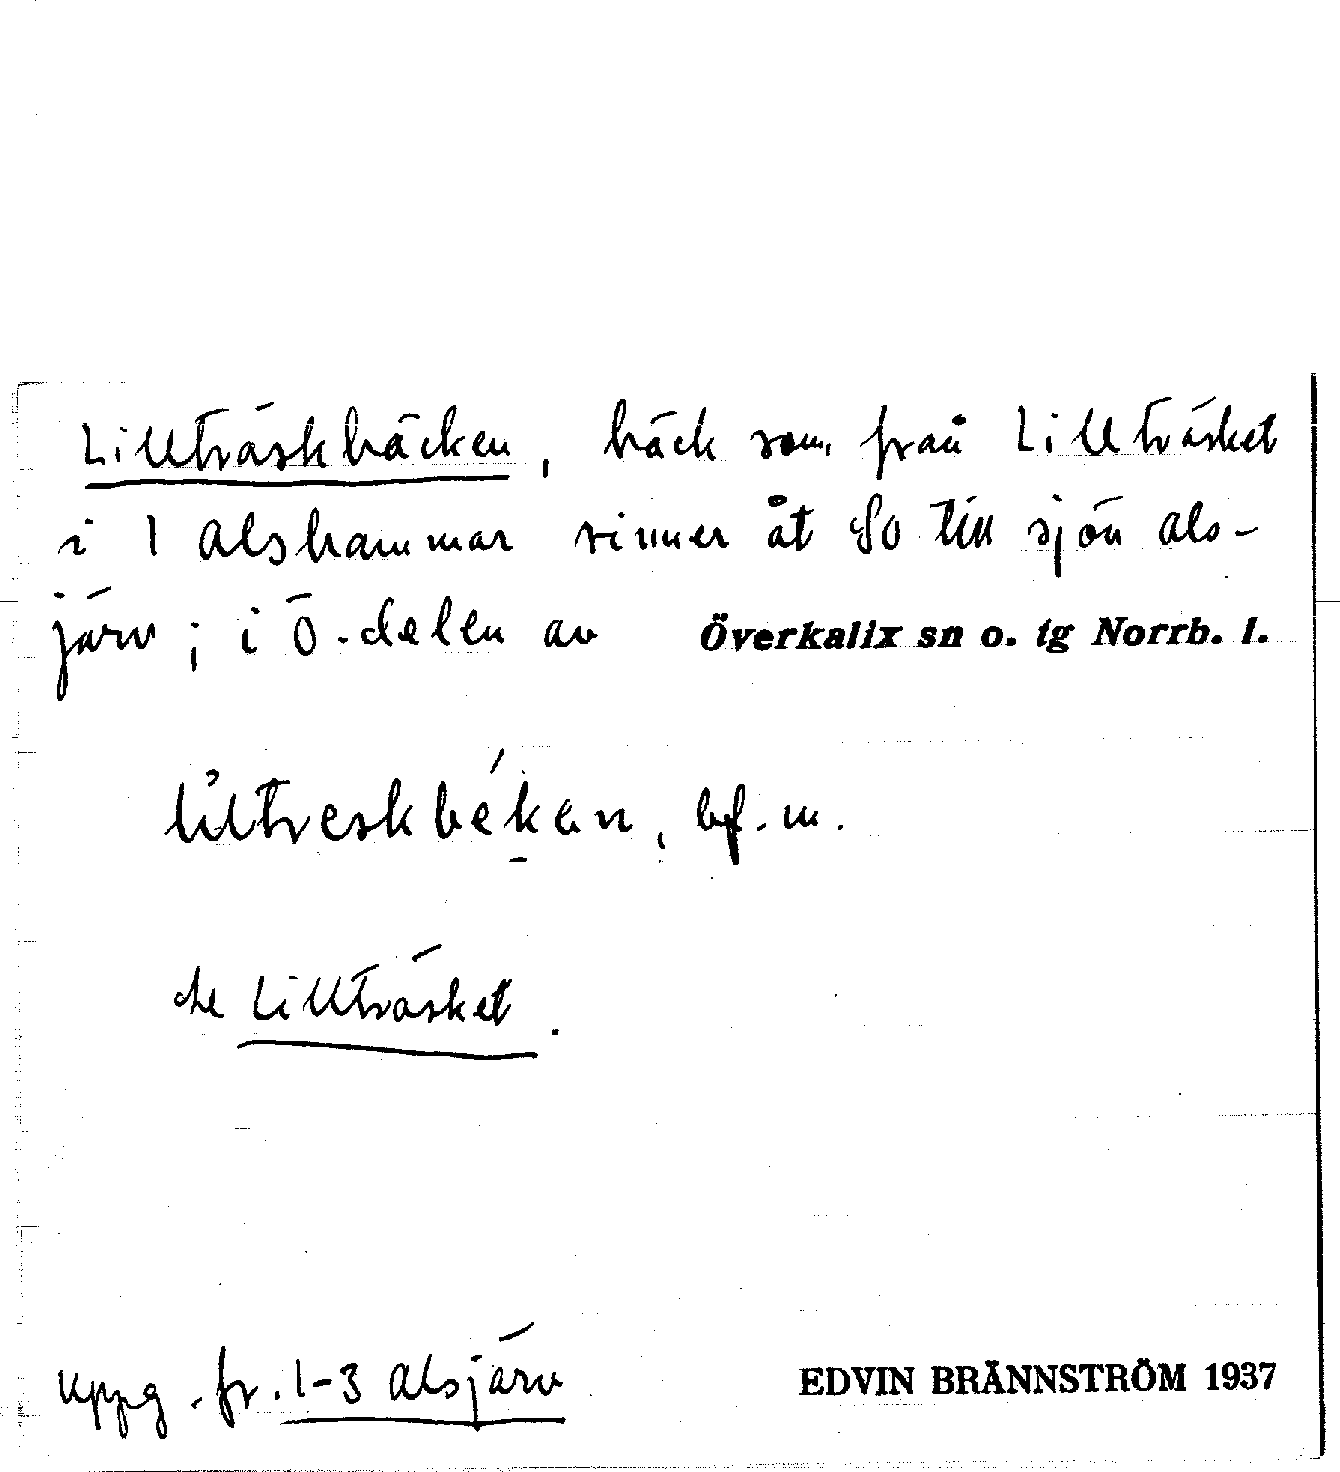 Lillträskbäcken, bäck som från Lillträsket
i 1 Alshammar rinner åt So till sjön Als-
järv; i Ö.delen av Överkalix sn o. tg Norrb. l.
liltreskbekan, bf. m.
de Lillträsket.
Uppg. fr. 1-3 Alsjärv EDVIN BRÄNNSTRÖM 1937